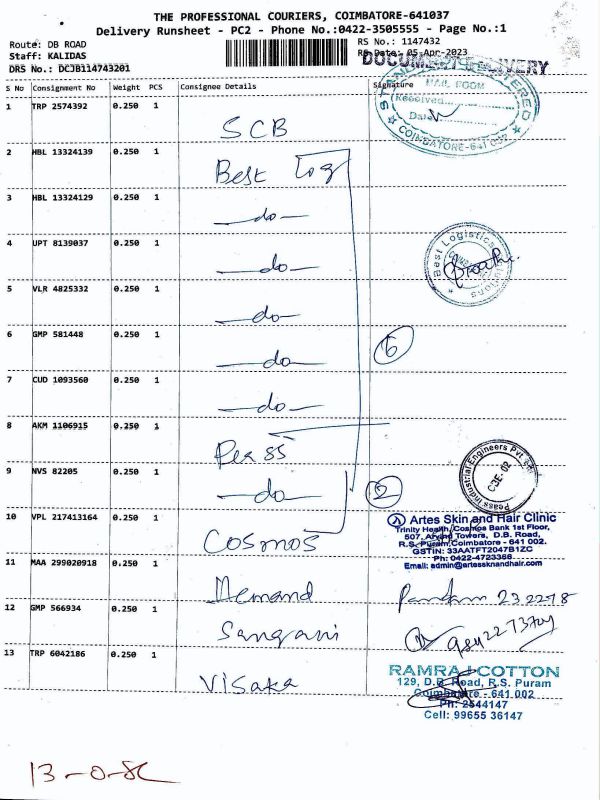 THE PROFESSIONAL COURIERS, COIMBATORE-641037
Delivery Runsheet - PC2 - Phone No.:0422-3505555 - Page No.:1
Route: DB ROAD
RS No.: 1147432
Staff: KALIDAS
RS Date: 05-Apr-2023
DOCUMENT DELIVERY
DRS No.: DCJB114743201
S No Consignment No Weight PCS Consignee Details Signature
MAIL ROOM
Received
Date
COIMBATORE-641
1 TRP 2574392 0.250 1
SCB
2 HBL 13324139 0.250 1
Best Log
3 HBL 13324129 0.250 1
—do—
4 UPT 8139037 0.250 1
—do—
Best Logistics Solutions
5 VLR 4825332 0.250 1
—do—
6 GMP 581448 0.250 1
—do—
6
7 CUD 1093560 0.250 1
—do—
8 AKM 1106915 0.250 1
Peass
Peass Industrial Engineers Pvt. Ltd
CBE-02
9 NVS 82205 0.250 1
—do—
2
10 VPL 217413164 0.250 1
Cosmos
Artes Skin and Hair Clinic
Trinity Health, Cosmos Bank 1st Floor,
507, Arvind Towers, D.B. Road,
R.S. Puram, Coimbatore - 641 002.
GSTIN: 33AATFT2047B1ZC
Ph: 0422-4723366
Email: admin@artessknandhair.com
11 MAA 299020918 0.250 1
12 GMP 566934 0.250 1
Sangani
13 TRP 6042186 0.250 1
Visaka
RAMRAJ COTTON
129, D.B. Road, R.S. Puram
Coimbatore - 641 002
Ph: 2544147
Cell: 99655 36147